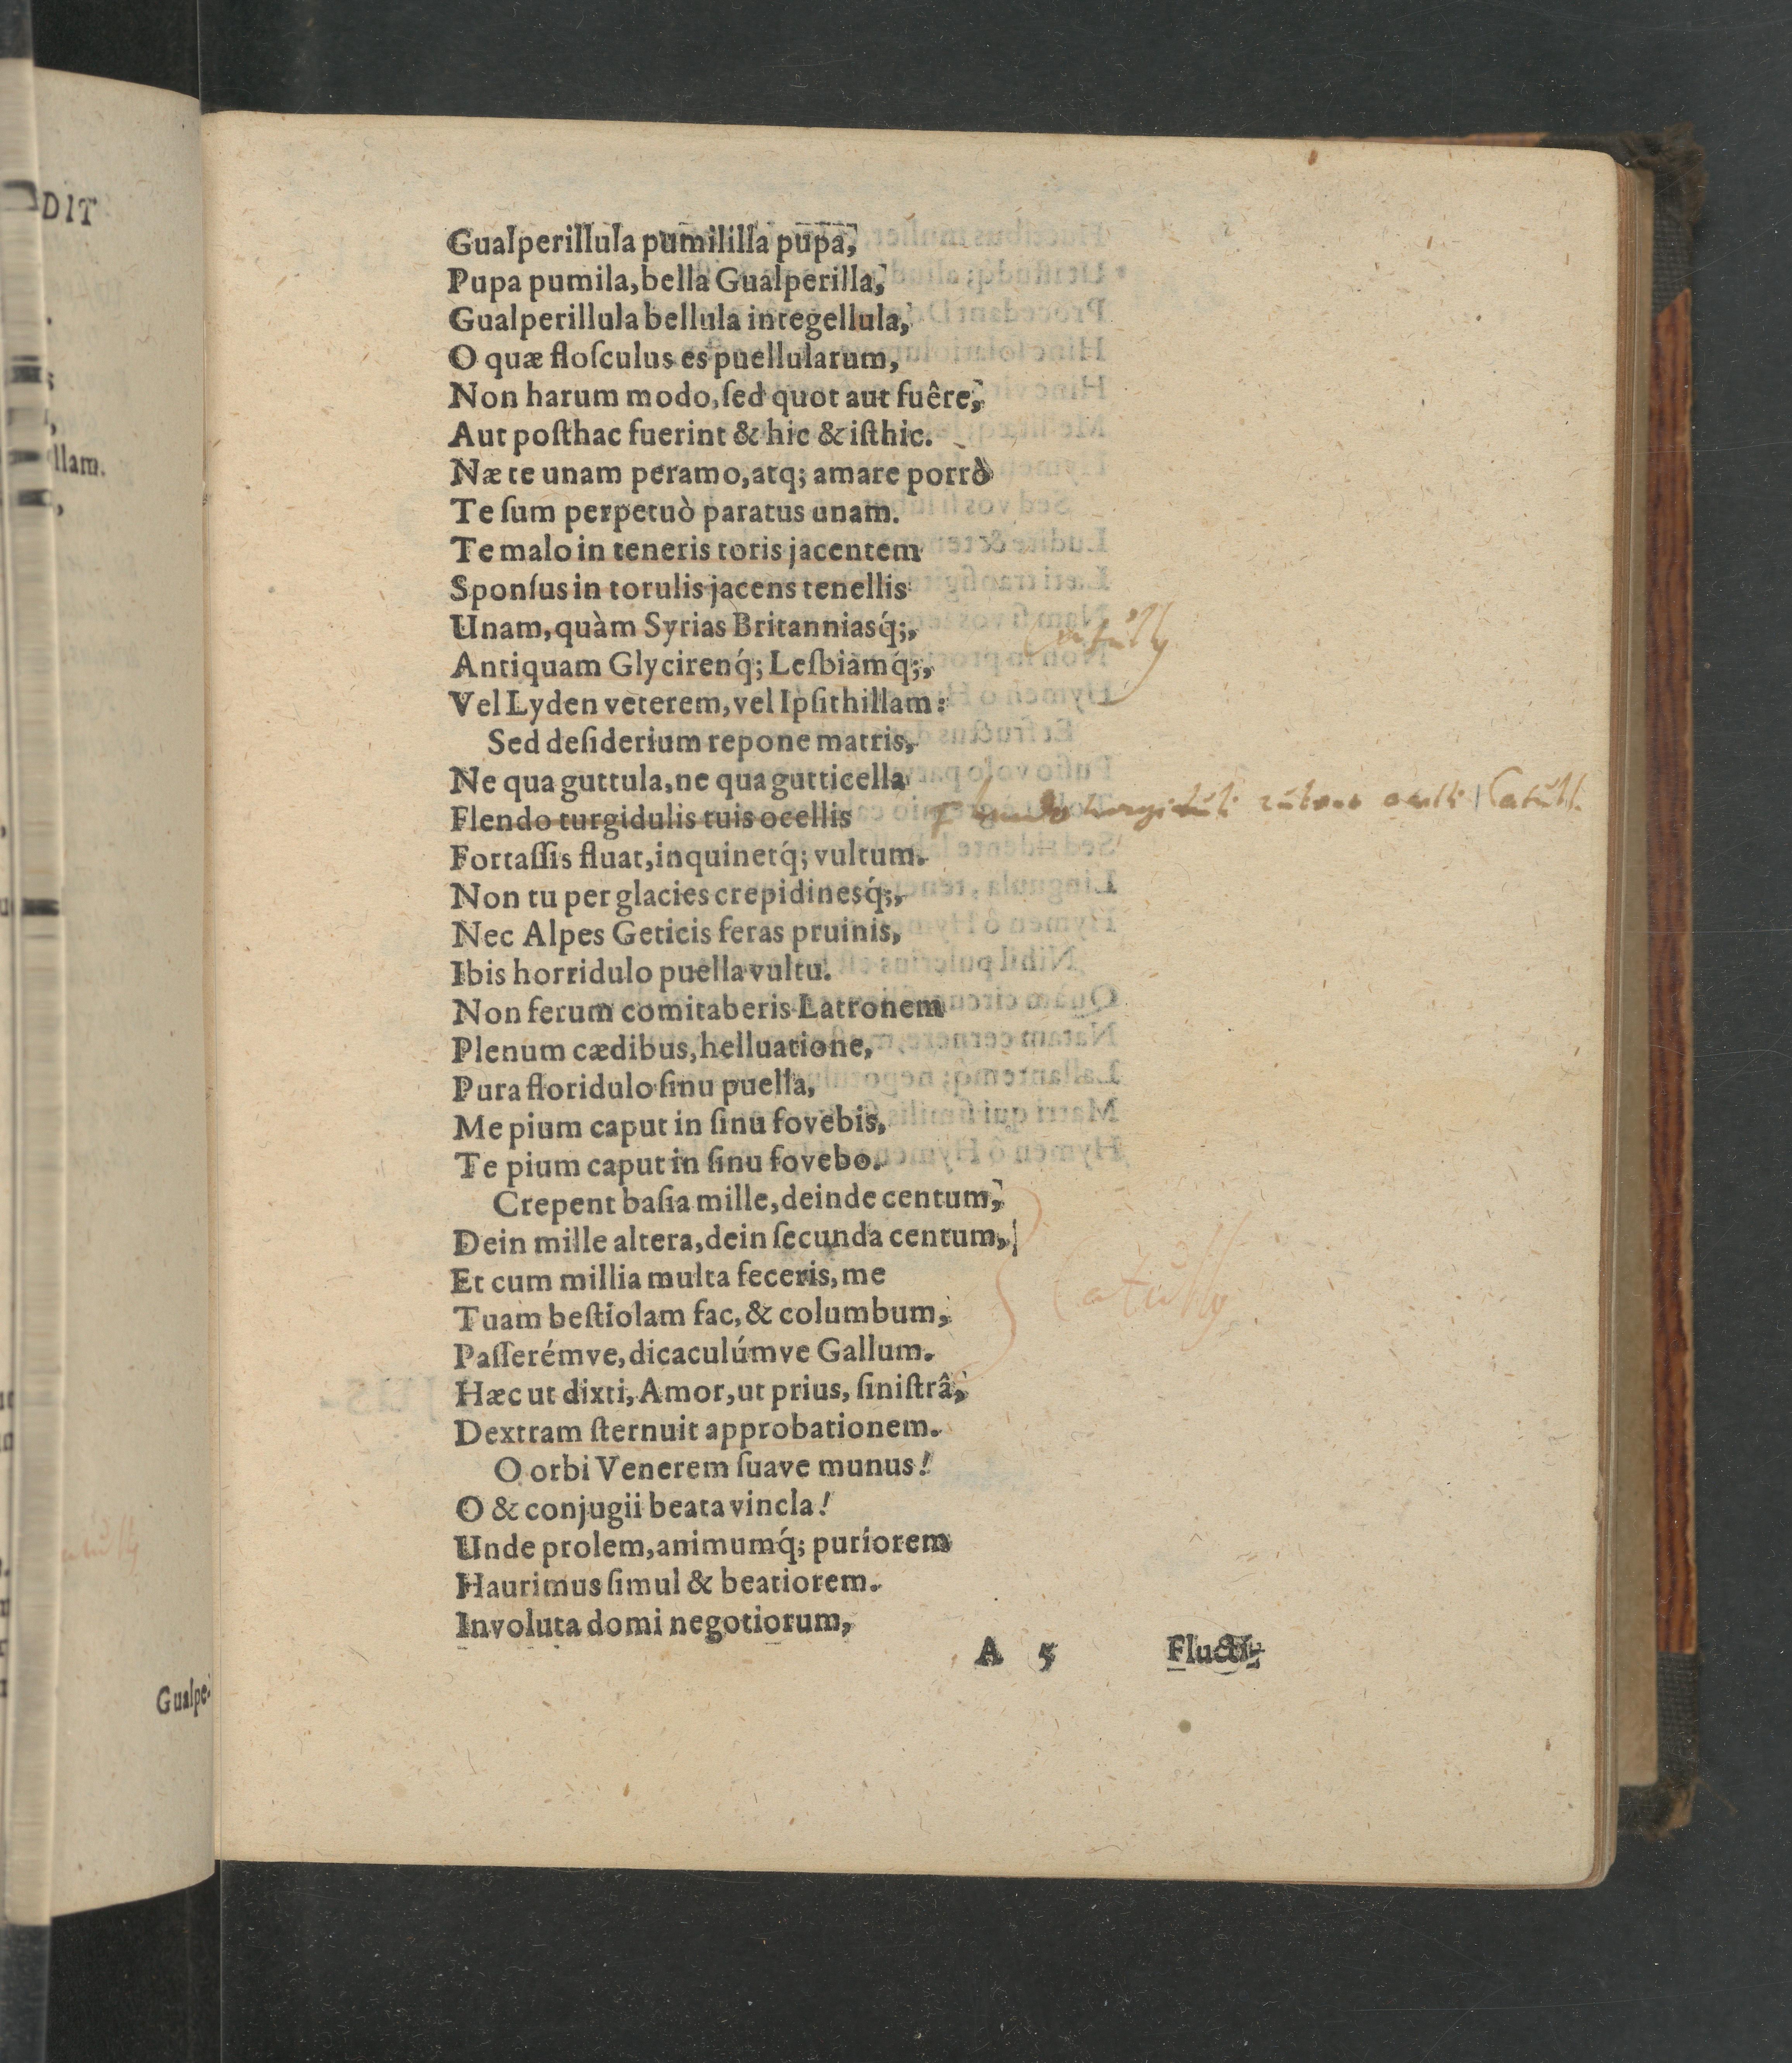 DIT
llam.
Gualpe-
Gualperillula pumililla pupa,
Pupa pumila, bella Gualperilla,
Gualperillula bellula integellula,
O quæ floſculus es puellularum,
Non harum modo, ſed quot aut fuêre,
Aut poſthac fuerint & hic & iſthic.
Næ te unam peramo, atq; amare porrò
Te ſum perpetuò paratus unam.
Te malo in teneris toris jacentem
Sponſus in torulis jacens tenellis
Unam, quàm Syrias Britanniasq́;,
Antiquam Glycirenq́; Leſbiamq́;,
Vel Lyden veterem, vel Ipſithillam:
Sed deſiderium repone matris,
Ne qua guttula, ne qua gutticella
Flendo turgidulis tuis ocellis
Flendo turgiduli rubent ocelli Catull.
Fortaſſis fluat, inquinetq́; vultum.
Non tu per glacies crepidinesq́;,
Nec Alpes Geticis feras pruinis,
Ibis horridulo puella vultu.
Non ferum comitaberis Latronem
Plenum cædibus, helluatione,
Pura floridulo ſinu puella,
Me pium caput in ſinu fovebis,
Te pium caput in ſinu fovebo.
Crepent baſia mille, deinde centum,
Dein mille altera, dein ſecunda centum,
Et cum millia multa feceris, me
Tuam beſtiolam fac, & columbum,
Paſſerémve, dicaculúmve Gallum.
Hæc ut dixti, Amor, ut prius, ſiniſtrâ,
Dextram ſternuit approbationem.
O orbi Venerem ſuave munus!
O & conjugii beata vincla!
Unde prolem, animumq́; puriorem
Haurimus ſimul & beatiorem.
Involuta domi negotiorum,
A 5 Flucti-